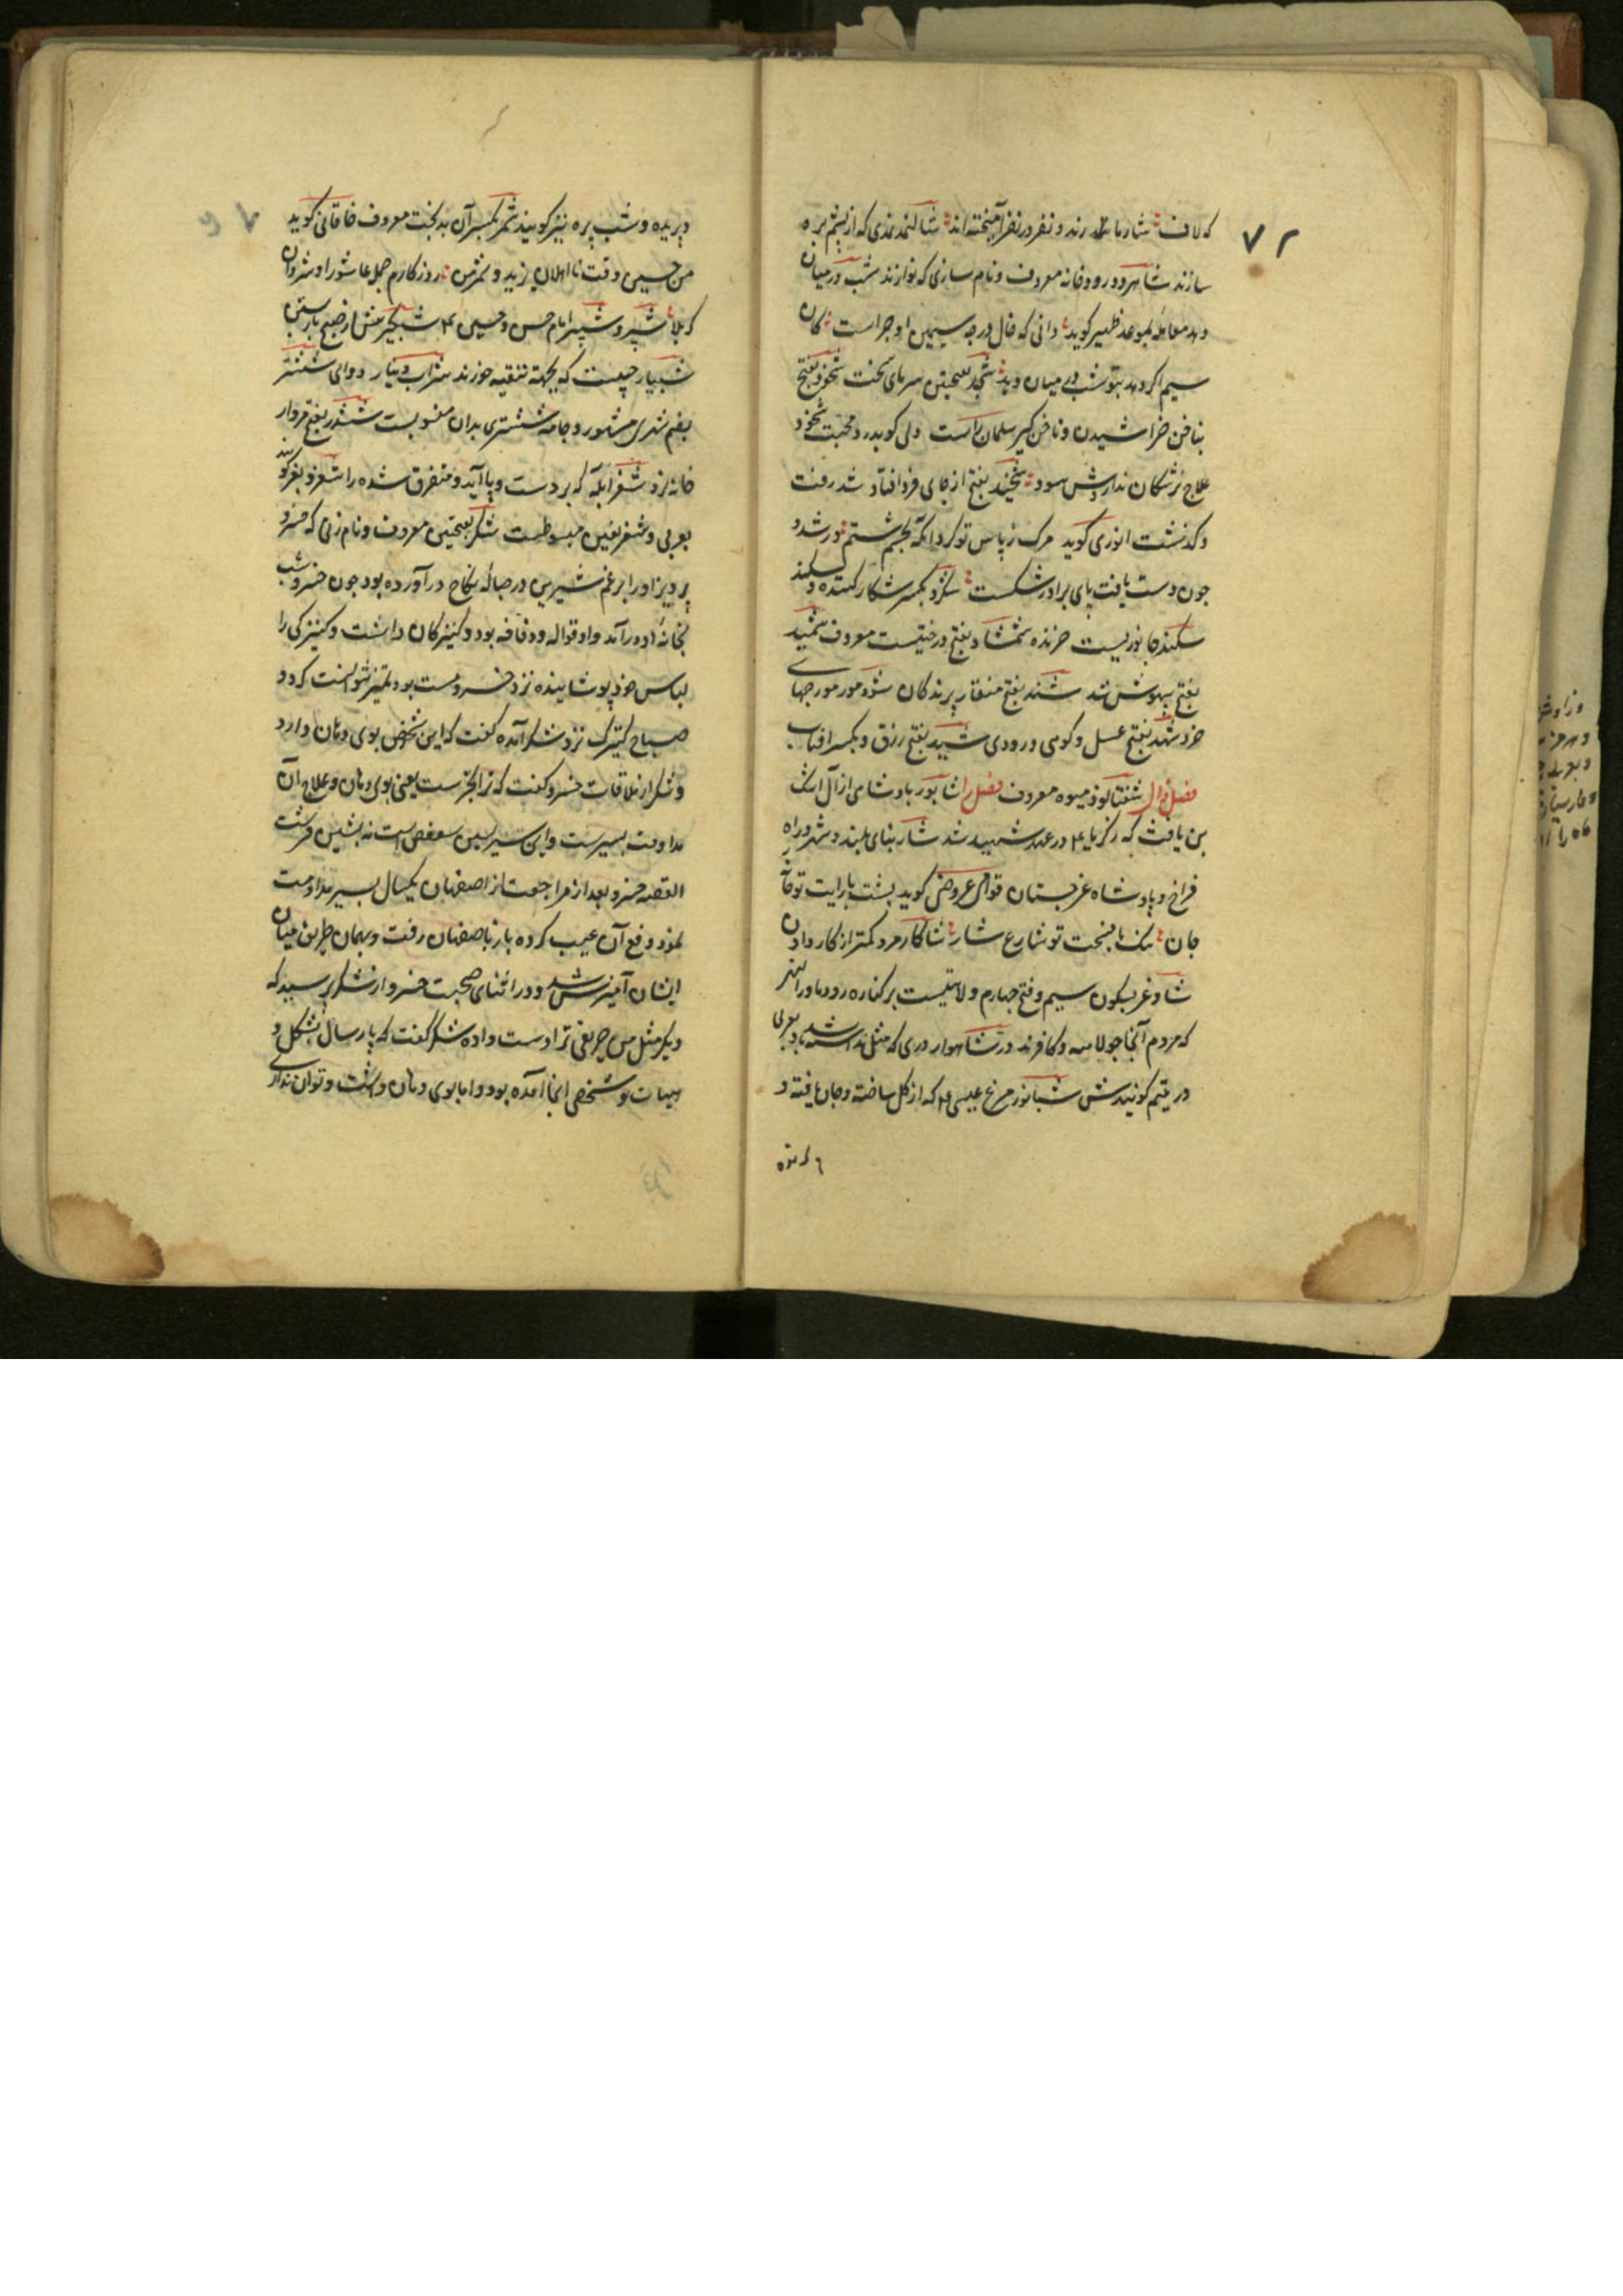 ۷۲
که لاف شار ما رند و نفر در نفر آمیخته اند شالنمد نمدی که از پشم بره
سازند شاهرود رودخانه معروف و نام سازی که نوازند شب در میان
دهد معامله بموعد ظهیر گوید دانی که خال در چه سیمین او چراست کان
سیم اگر دهد بتو شب در میان دهد شجد بفتحتین سرمای سخت شخود بفتح
بناخن خراشیدن و ناخن گیر سلمان راست دلی کو بدرد محبت شخود
علاج پزشکان نداردش سود شخید بفتح از جای فرو افتاد شد رفت
و گذشت انوری گوید مرگ ز پاس تو کرد آنکه بچشم ستم نور شد و
چون دست یافت پای برادر شکست شکرد بکسر شکار کننده و شکند
شکند جانوریست خزنده شمشاد بفتح درختیست معروف شمید
بفتح بیهوش شد شند بفتح منقار پرندگان شود مور مورچهای
خرد شهد بفتح عسل و کوهی و رودی شید بفتح رزق و بکسر افتاب
فصل ذال شفتالوذ میوه معروف فصل را شاپور پادشاهی از آل اشک
بن یافث که زکریا ع در عهد شهید شد شار بنای بلند و شهر و راه
فراخ و پادشاه غرجستان قوامی عروضی گوید پشت با رایت تو خان
جان تنگ با فسحت تو شارع شار شاکار مزد کمتر از کار دادن
شاوغر بسکون سیم و فتح چهارم ولایتیست بر کناره رود ماوراء النهر
که مردم آنجا جولاهه و کافرند در شاهوار دری که مثل نداشته باشد و بعربی
در یتیم گویندش شبانور مرغ عیسی ع که از گل ساخته و جان یافته و
پریده و شب پره نیز گویند شمر بکسر آن بدبخت معروف خاقانی گوید
من حسین وقت نااهلان یزید و شمر من روزگارم جمله عاشورا و شروان
کربلا شبر و شبیر امام حسن و حسین ع شبگیر پیش از صبح بار بستن
شبیار حبیست که بجهة تنقیه خورند شراب دینار دوای ششتر
بضم شهری مشهور و جامه ششتری بدان منسوبست ششدر بفتح قرار
خانه نرد شغر آبله که بر دست و پا آید و متفرق شده را شغر و بغر گویند
بعربی و شغر بغین مبسوطست شکر بفتحتین معروف و نام زنی که خسرو
پرویز او را برغم شیرین در حباله نکاح درآورده بود چون خسرو شب
بخانه او درآمد و او قواله و دفافه بود و کنیزکان داشت و کنیزکی را
لباس خود پوشانیده نزد خسرو مست بود تمیز نتوانست کرد و
صباح کنیزک نزد شکر آمده گفت که این شخص بوی دهان دارد
و شکر از ملاقات خسرو گفت که ترا بخرست یعنی بوی دهان و علاج آن
مداومت بسیرست و این سیر بسین سعفص است نه بشین قرشت
القصه خسرو بعد از مراجعت از اصفهان یکسال بسیر مداومت
نمود و دفع آن عیب کرده باز باصفهان رفت و بهمان طریق میان
ایشان آمیزش شد و در اثنای صحبت خسرو از شکر پرسید که
دیگر مثل من حریفی ترا دست داده شکر گفت که پارسال بشکل و
هیات تو شخصی اینجا آمده بود و اما بوی دهان داشت و تو آن نداری